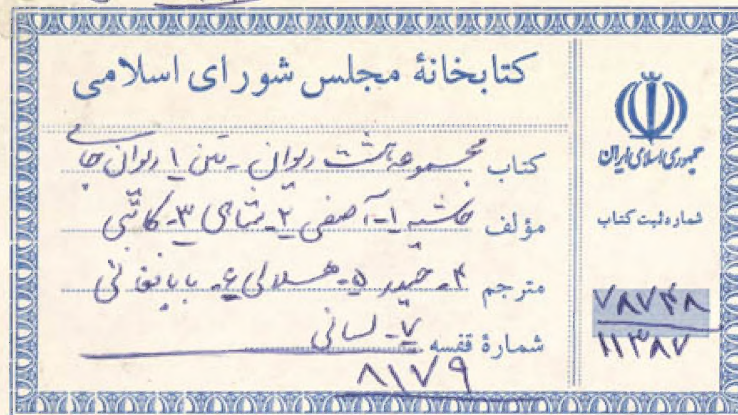 کتابخانهٔ مجلس شورای اسلامی
کتاب مجموعه هشت دیوان - متن ۱ دیوان جامی
مؤلف حاشیه ۱- آصفی ۲- شاهی ۳- کاتبی
مترجم ۴- حیدر ۵- هلالی ۶- بابا فغانی
شمارهٔ قفسه ۷- لسانی
۸۱۷۹
جمهوری اسلامی ایران
شماره ثبت کتاب
۷۸۷۴۸
۱۱۳۸۷